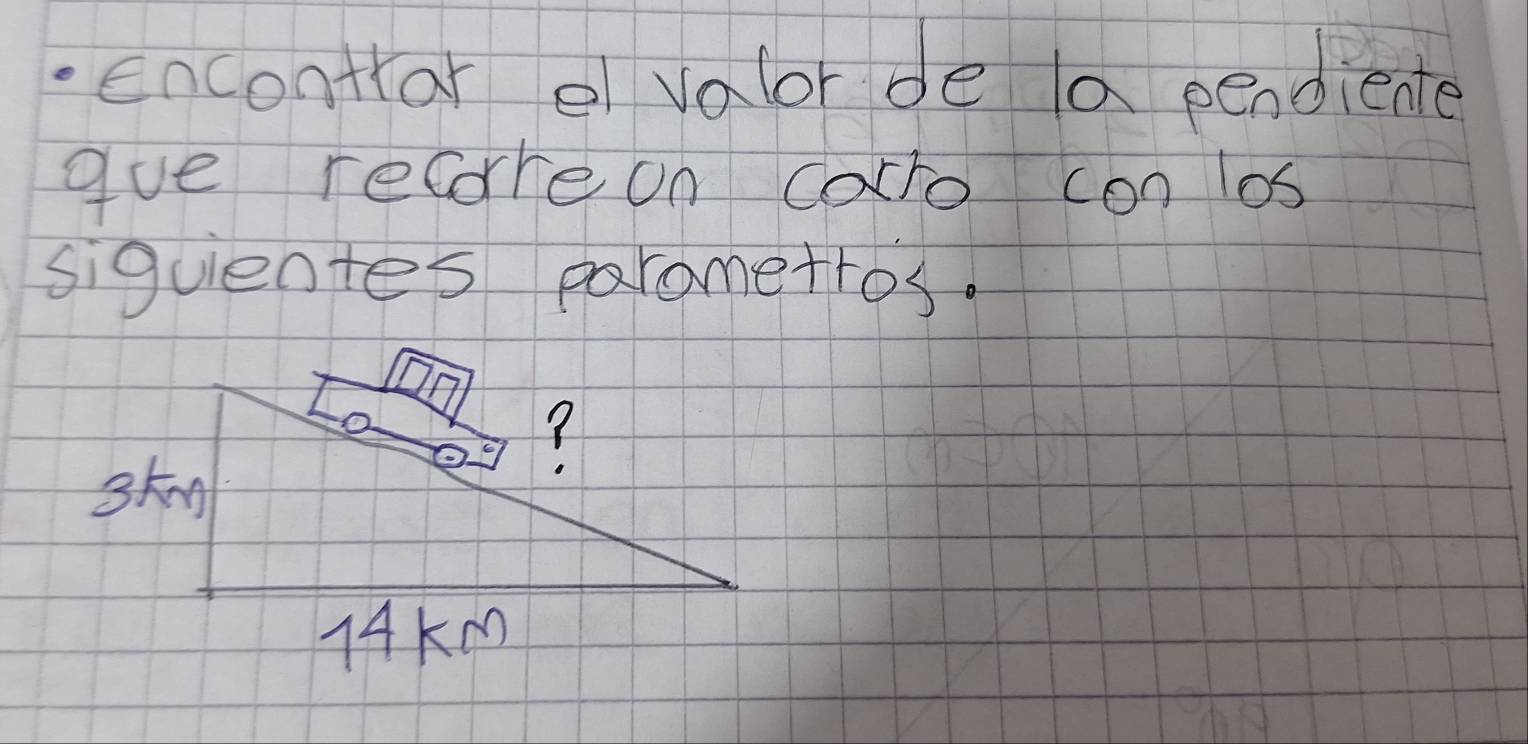 • Encontrar el valor de la pendiente
que recorre un carro con los
siguientes parametros.
?
3km
14km